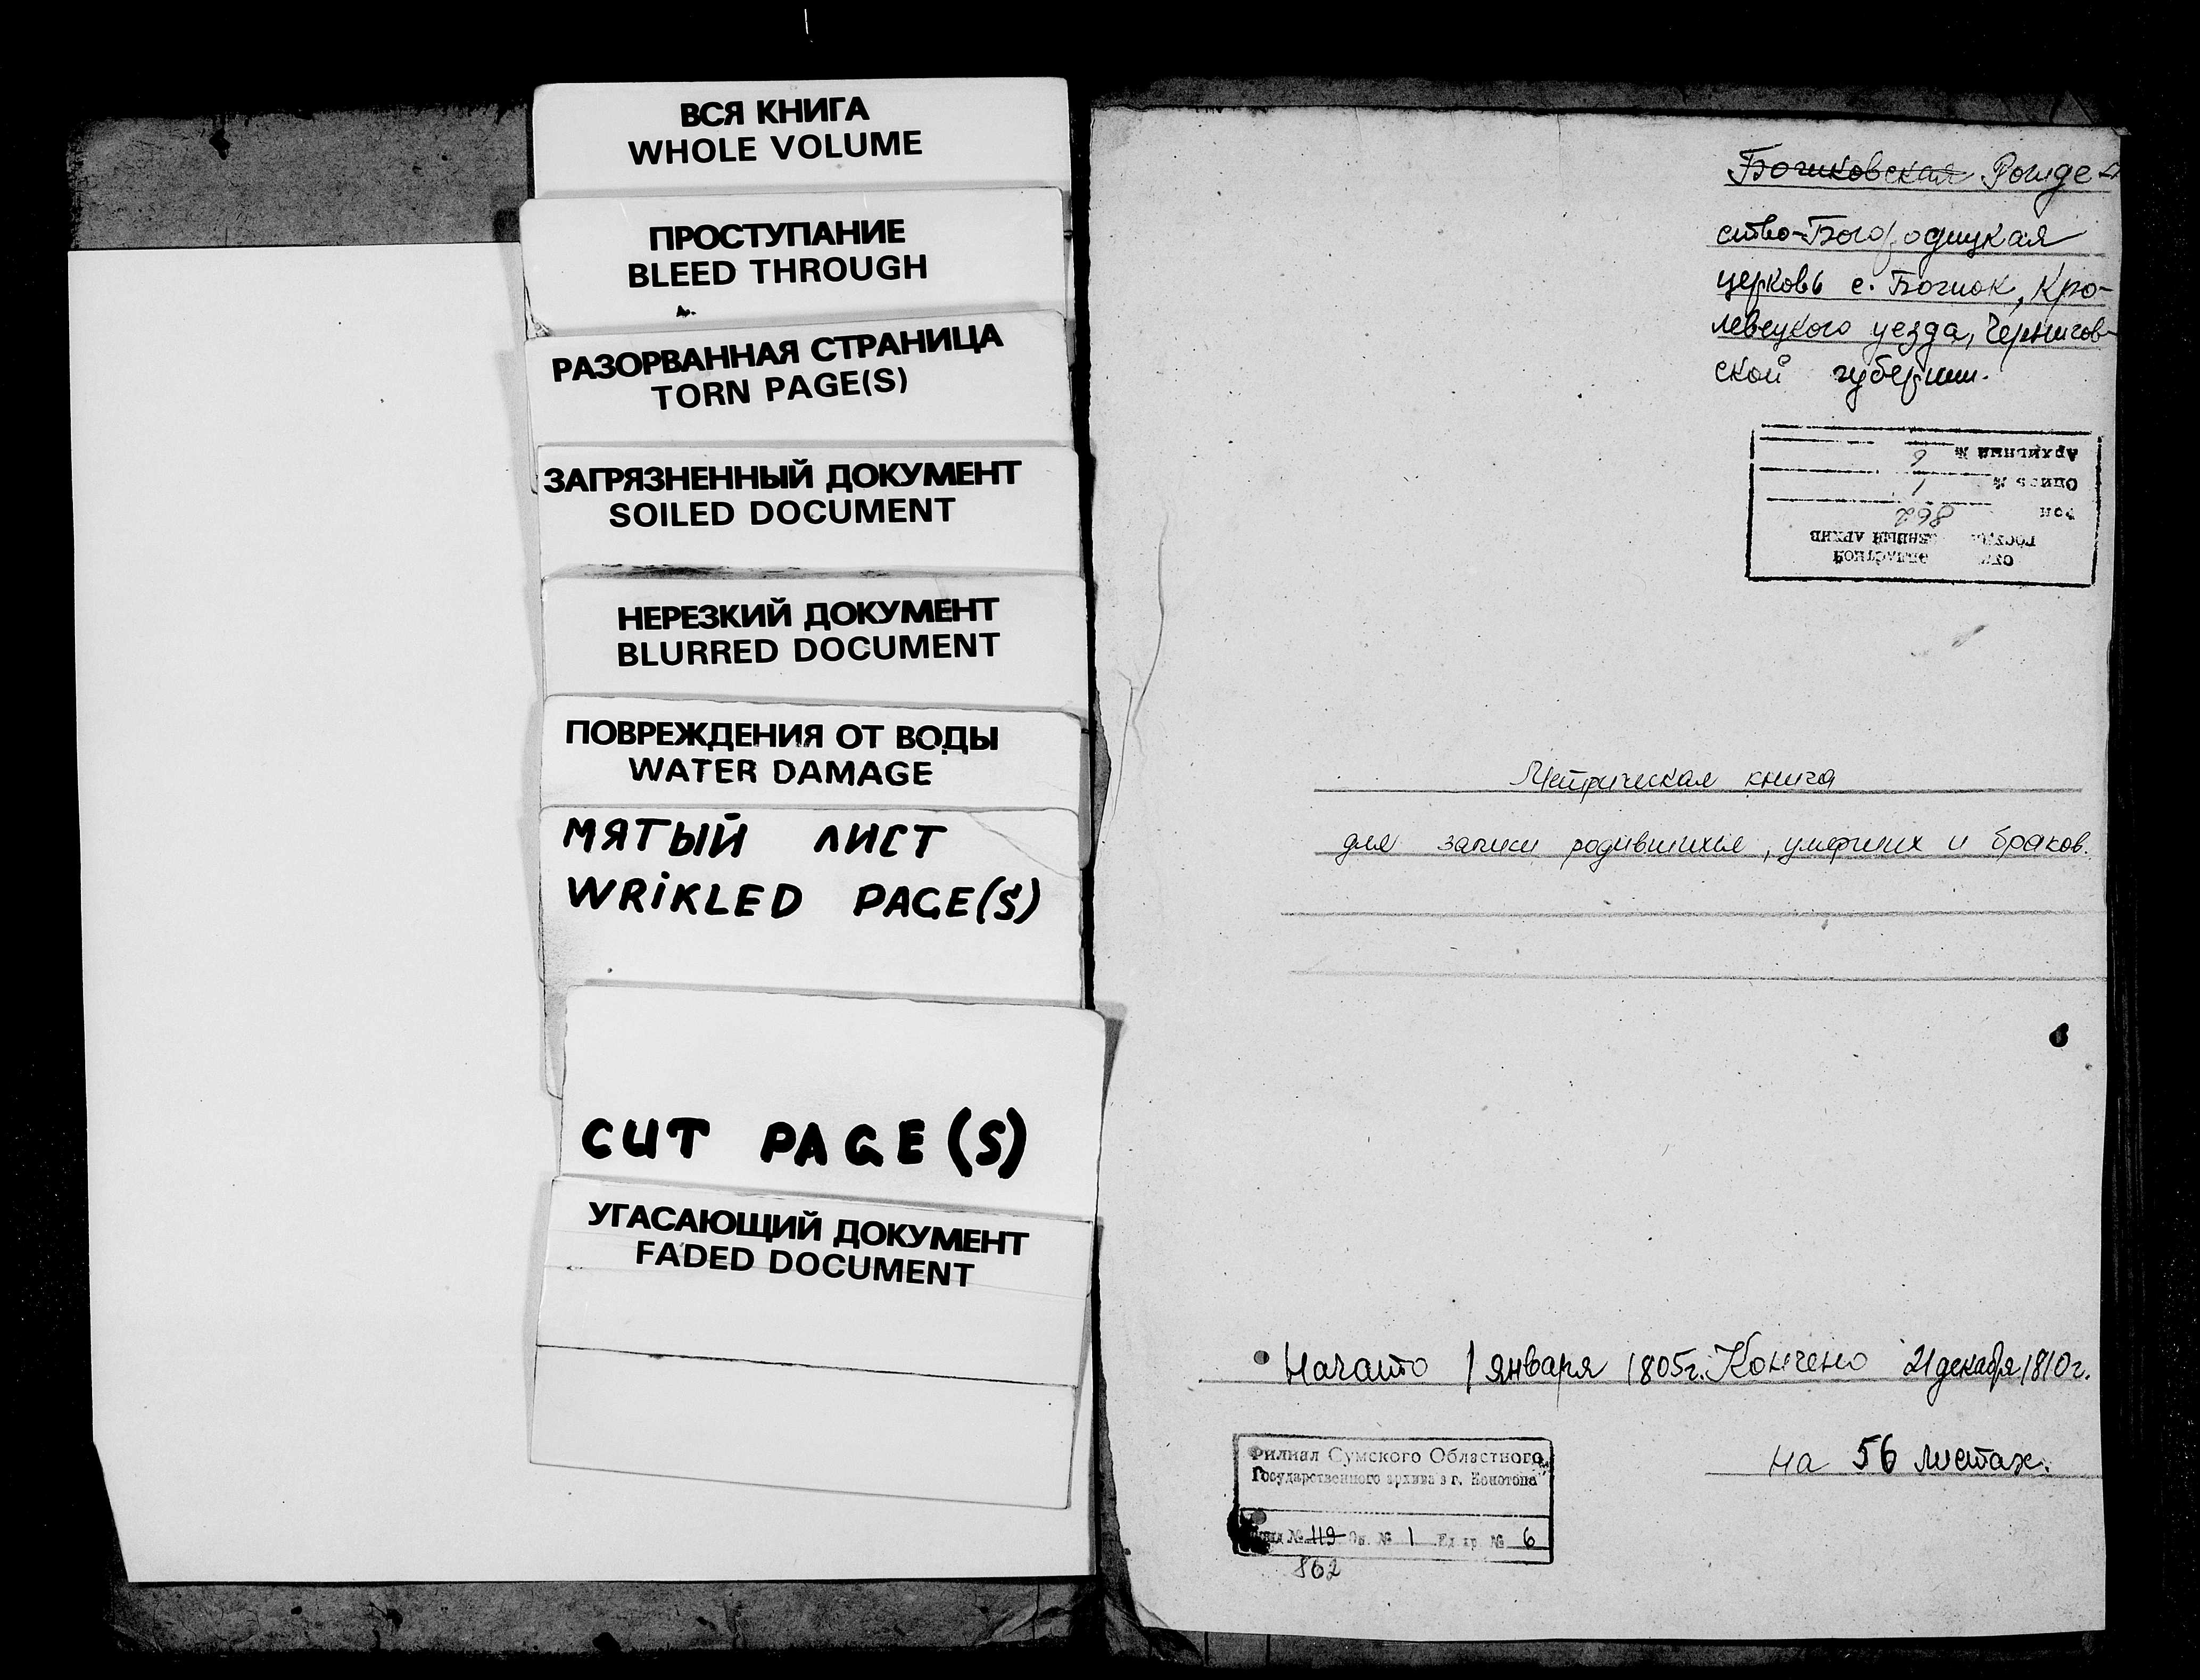 ВСЯ КНИГА
WHOLE VOLUME
ПРОСТУПАНИЕ
BLEED THROUGH
РАЗОРВАННАЯ СТРАНИЦА
TORN PAGE(S)
ЗАГРЯЗНЕННЫЙ ДОКУМЕНТ
SOILED DOCUMENT
НЕРЕЗКИЙ ДОКУМЕНТ
BLURRED DOCUMENT
ПОВРЕЖДЕНИЯ ОТ ВОДЫ
WATER DAMAGE
МЯТЫЙ ЛИСТ
WRIKLED PAGE(S)
CUT PAGE(S)
УГАСАЮЩИЙ ДОКУМЕНТ
FADED DOCUMENT
Рожде
ство-Богородицкая
церковь с. Божок, Кро-
левецкого уезда, Чернигов-
ской губернии.
Архивный № 6
Опись № 1
Фон 862
АРХИВ
Метрическая книга
для записи родившихся, умерших и браков.
Начато 1 января 1805г. Кончено 21 декабря 1810г.
на 56 листах.
Филиал Сумского Областного
Государственного архива в г. Конотопе
№ 119 Оп. № 1 Ед. хр. № 6
862